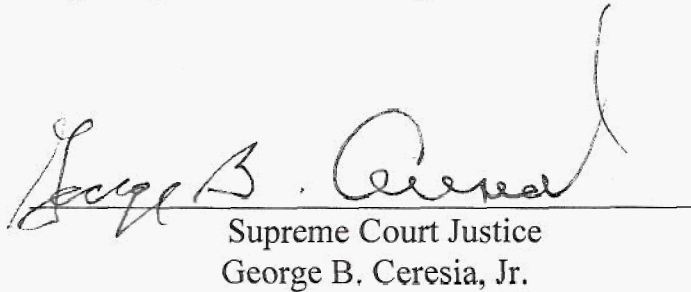 George B. Ceresia
Supreme Court Justice
George B. Ceresia, Jr.